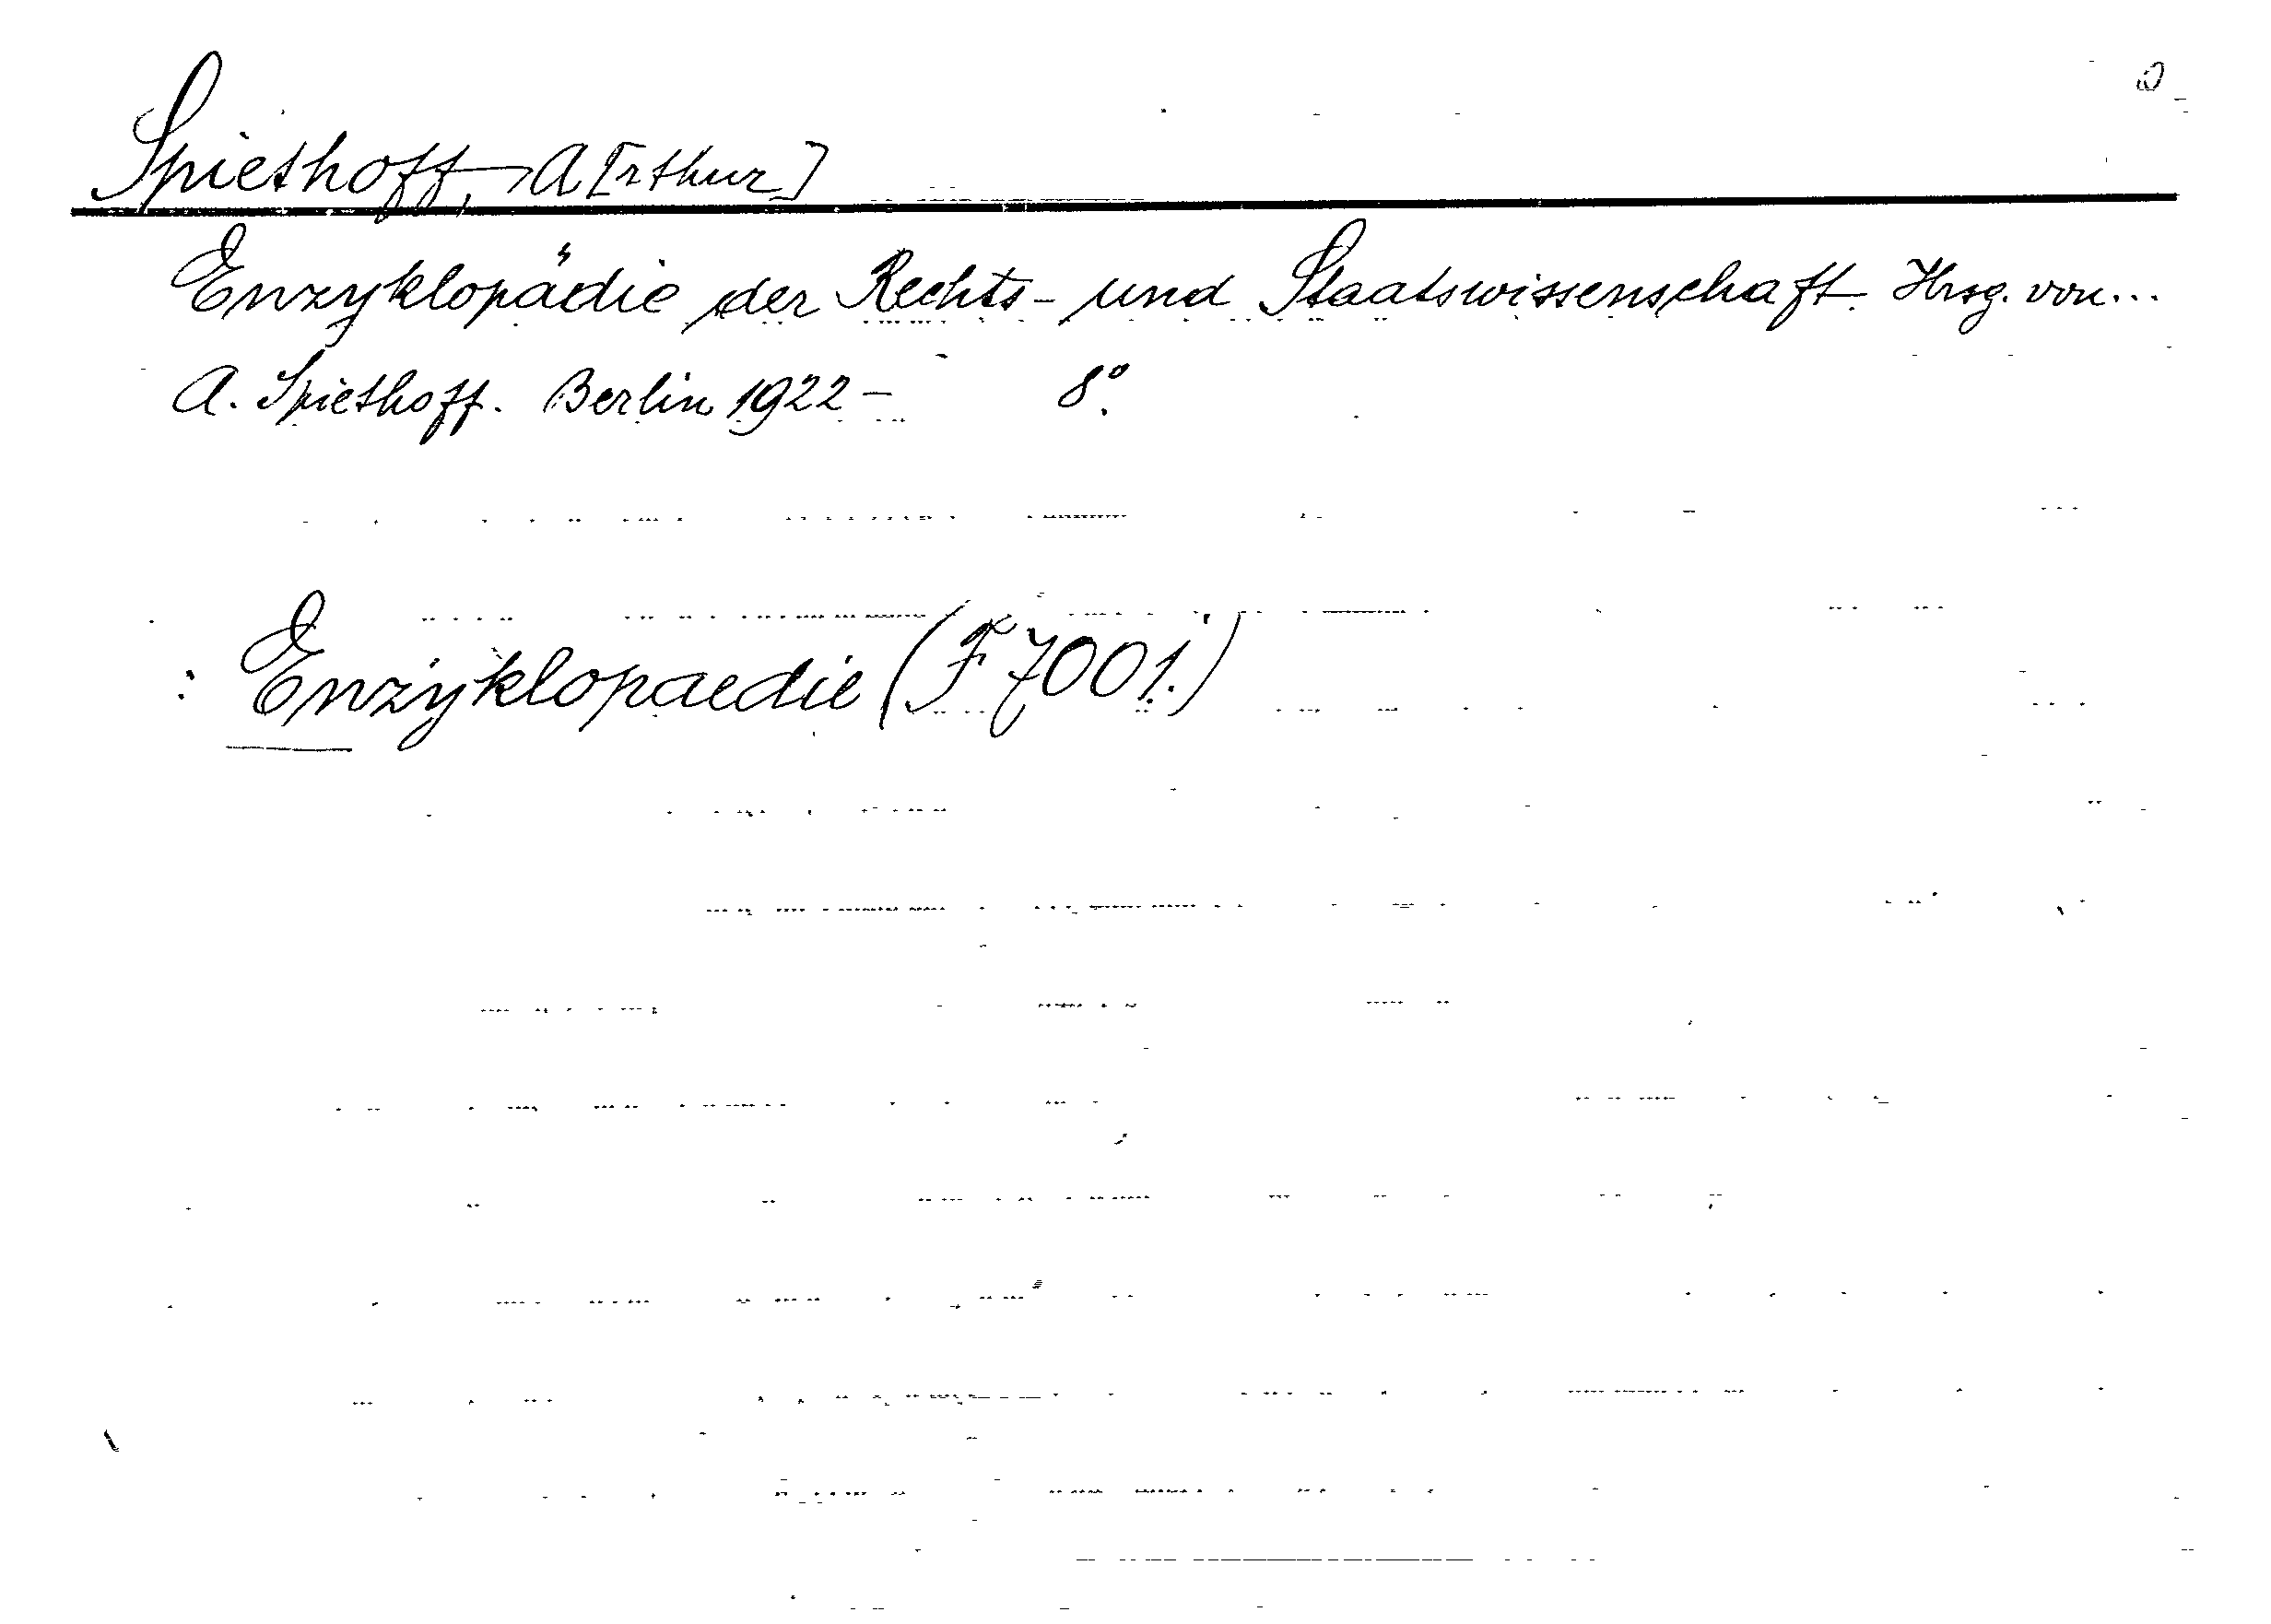 Spiethoff, A[rthur]
Enzyklopädie der Rechts- und Staatswissenschaft. Hrsg. von...
A. Spiethoff. Berlin 1922- 8°.
: Enzyklopaedie (F 7001.)